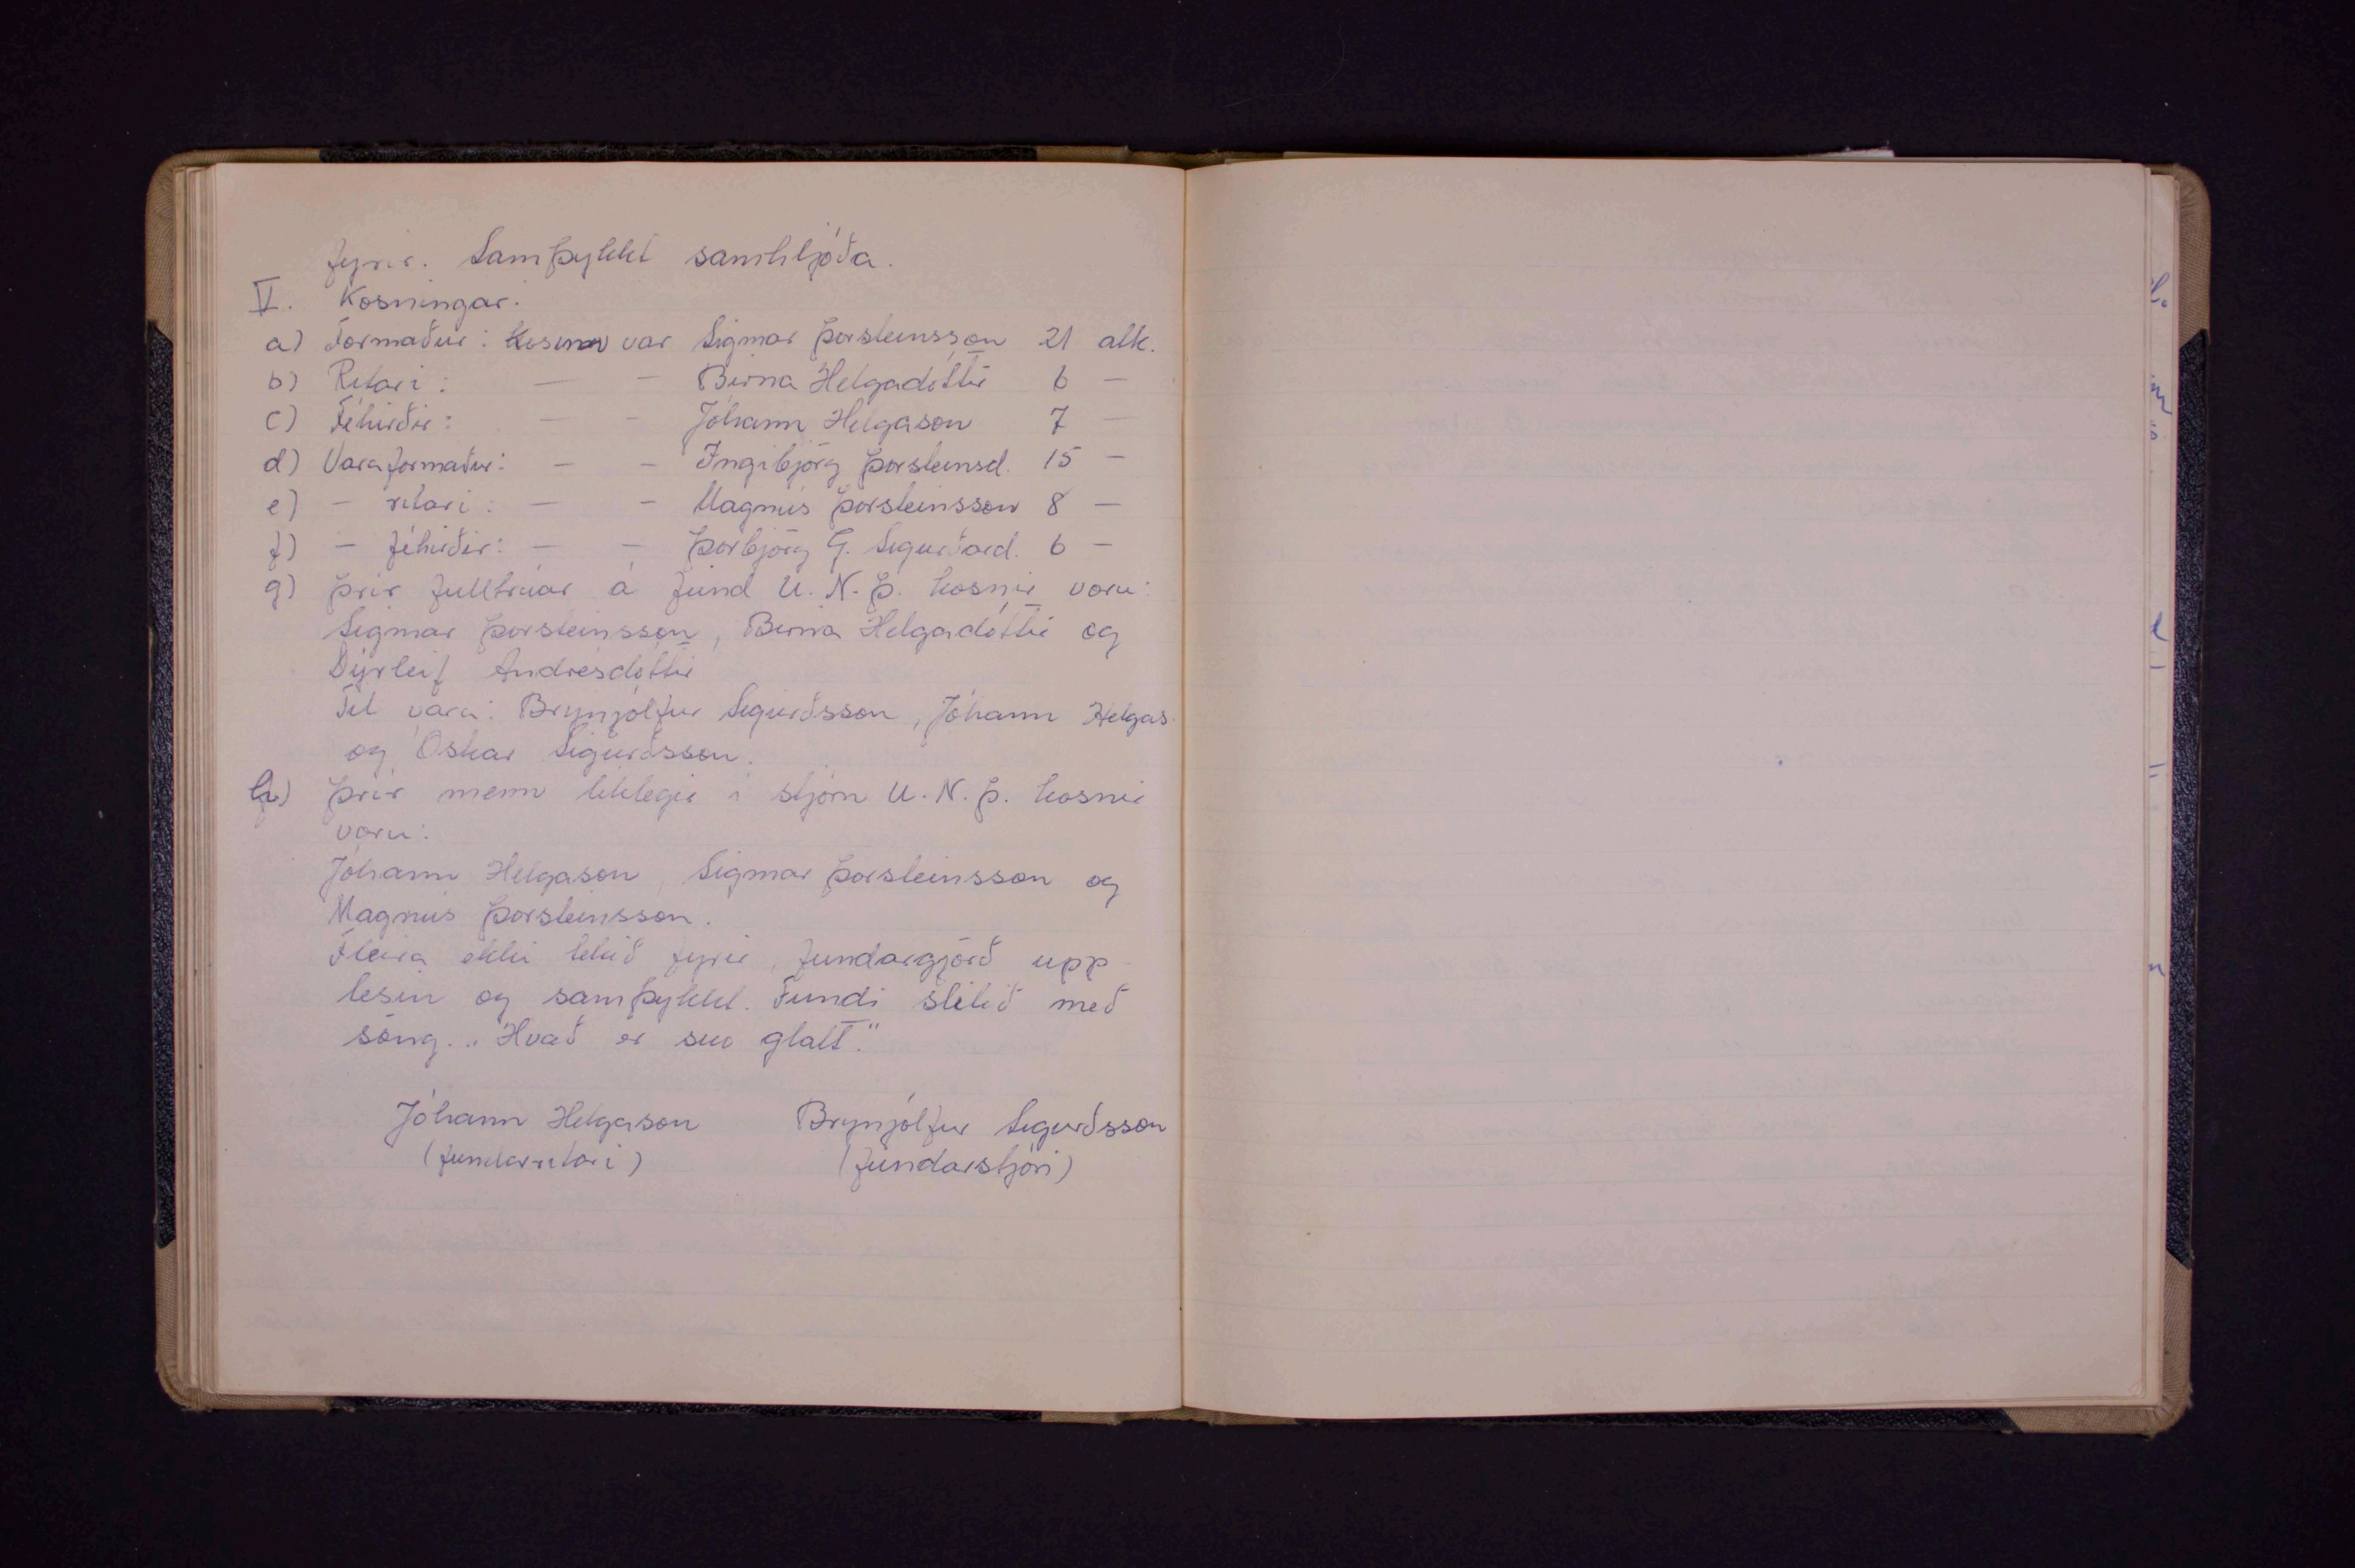 fyrir. Samþykkt samhljóða.
V. Kosningar.
a) Formaður: Kosinn var Sigmar Þorsteinsson 21 atk.
b) Ritari: — — Birna Helgadóttir 6 —
c) Féhirðir: — — Jóhann Helgason 7 —
d) Varaformaður: — — Ingibjörg Þorsteinsd. 15 —
e) — ritari: — — Magnús Þorsteinsson 8 —
f) — féhirðir: — — Þorbjörg G. Sigurðard. 6 —
g) Þrír fulltrúar á fund U.N.Þ. kosnir voru:
Sigmar Þorsteinsson, Birna Helgadóttir og
Dýrleif Andrésdóttir
Til vara: Brynjólfur Sigurðsson, Jóhann Helgas.
og Óskar Sigurðsson.
h) Þrír menn líklegir í stjórn U.N.Þ. kosnir
voru:
Jóhann Helgason, Sigmar Þorsteinsson og
Magnús Þorsteinsson.
Fleira ekki tekið fyrir, fundargjörð upp
lesin og samþykkt. Fundi slitið með
söng. „Hvað er svo glatt."
Jóhann Helgason Brynjólfur Sigurðsson
(fundarritari) (fundarstjóri)